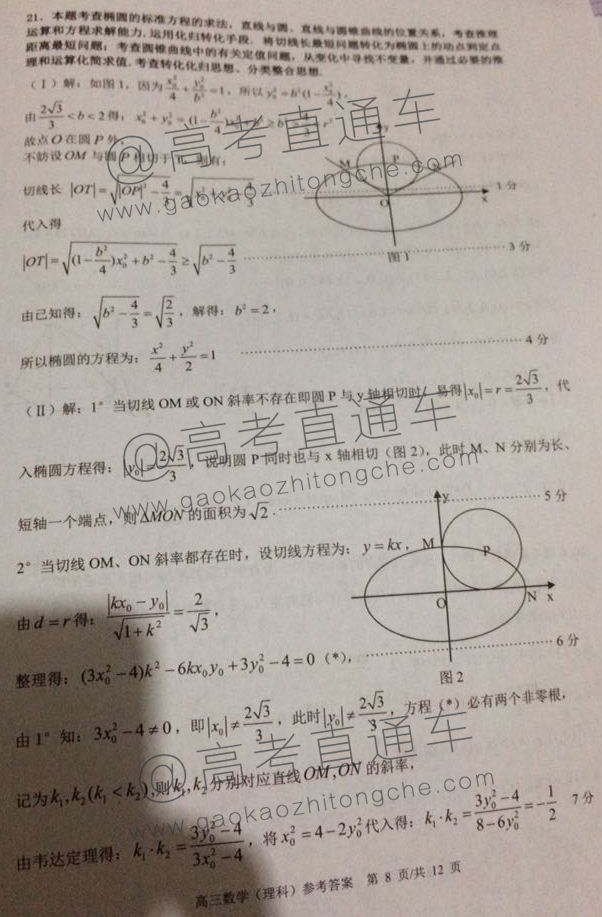 21. 本题考查椭圆的标准方程的求法,直线与圆、直线与圆锥曲线的位置关系,考查推理
运算和方程求解能力.运用化归转化手段.将切线长最短问题转化为椭圆上的动点到定点
距离最短问题;考查圆锥曲线中的有关定值问题,从变化中寻找不变量,并通过必要的推
理和运算化简求值.考查转化化归思想、分类整合思想.
(Ⅰ)解:如图1,因为 x₀²/4 + y₀²/b² = 1,所以 y₀² = b²(1 - x₀²/4),
由 2√3/3 < b < 2 得:x₀² + y₀² = (1 - b²/4)
故点 O 在圆 P 外,
不妨设 OM 与圆 P 相切于
切线长 |OT| = √(|OP|² - 4/3) = …… 1分
代入得
|OT| = √((1 - b²/4)x₀² + b² - 4/3) ≥ √(b² - 4/3) …… 3分
M P O x y
图1
由已知得:√(b² - 4/3) = √(2/3),解得:b² = 2,
所以椭圆的方程为:x²/4 + y²/2 = 1 …… 4分
(Ⅱ)解:1° 当切线 OM 或 ON 斜率不存在即圆 P 与 y 轴相切时,易得 |x₀| = r = 2√3/3,代
入椭圆方程得:|y₀| = 2√3/3,说明圆 P 同时也与 x 轴相切(图2),此时 M、N 分别为长、
短轴一个端点,则 ΔMON 的面积为 √2. …… 5分
2° 当切线 OM、ON 斜率都存在时,设切线方程为:y = kx,
由 d = r 得:|kx₀ - y₀|/√(1 + k²) = 2/√3,
整理得:(3x₀² - 4)k² - 6kx₀y₀ + 3y₀² - 4 = 0 (*), …… 6分
M P O N x y
图2
由 1° 知:3x₀² - 4 ≠ 0,即 |x₀| ≠ 2√3/3,此时 |y₀| ≠ 2√3/3,方程(*)必有两个非零根,
记为 k₁, k₂ (k₁ < k₂),则 k₁, k₂ 分别对应直线 OM, ON 的斜率,
由韦达定理得:k₁·k₂ = (3y₀² - 4)/(3x₀² - 4),将 x₀² = 4 - 2y₀² 代入得:k₁·k₂ = (3y₀² - 4)/(8 - 6y₀²) = -1/2 7分
高三数学(理科)参考答案 第 8 页/共 12 页
@高考直通车
www.gaokaozhitongche.com
@高考直通车
www.gaokaozhitongche.com
@高考直通车
www.gaokaozhitongche.com